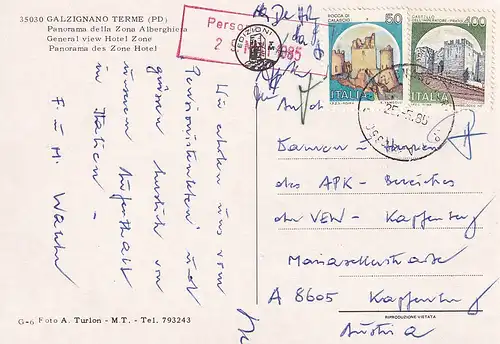 35030 GALZIGNANO TERME (PD)
Panorama della Zona Alberghiera
General view Hotel Zone
Panorama des Zone Hotel
Perso
2
985
ROCCA DI CALASCIO
50
ITALIA
CASTELLO DELL'IMPERATORE - PRATO
400
ITALIA
Wir erholen uns vom
"Pensionistenleben" und
grüssen herzlich von
unserem Aufenthalt
in Italien –
F. u. M.
An die
Damen u. Herren
des APK - Bereiches
der VEW - Kapfenberg
Mariazellerstrasse
A 8605 Kapfenberg
Austria
G-6 Foto A. Turlon - M.T. - Tel. 793243
RIPRODUZIONE VIETATA